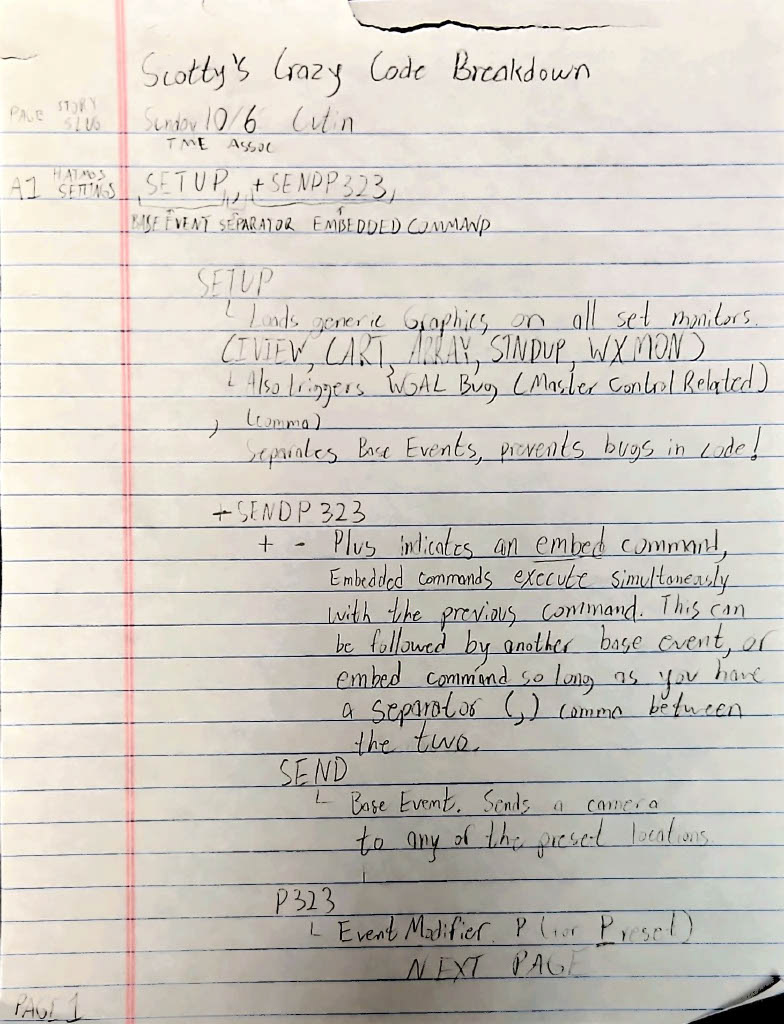 Scotty's Crazy Code Breakdown
PAGE STORY SLUG Sunday 10/6 Cutin
TME ASSOC
A1 SETTINGS SETUP, +SENDP323,
BASE EVENT SEPARATOR EMBEDDED COMMAND
SETUP
└ Loads generic Graphics on all set monitors.
(IVIEW, CART, ARRAY, STNDUP, WXMON)
└ Also triggers WGAL Bug (Master Control Related)
, (comma)
Separates Base Events, prevents bugs in code!
+SENDP323
+ - Plus indicates an embed command,
Embedded commands execute simultaneously
with the previous command. This can
be followed by another base event, or
embed command so long as you have
a separator (,) comma between
the two.
SEND
└ Base Event. Sends a camera
to any of the preset locations
P323
└ Event Modifier. P (for Preset)
NEXT PAGE
PAGE 1